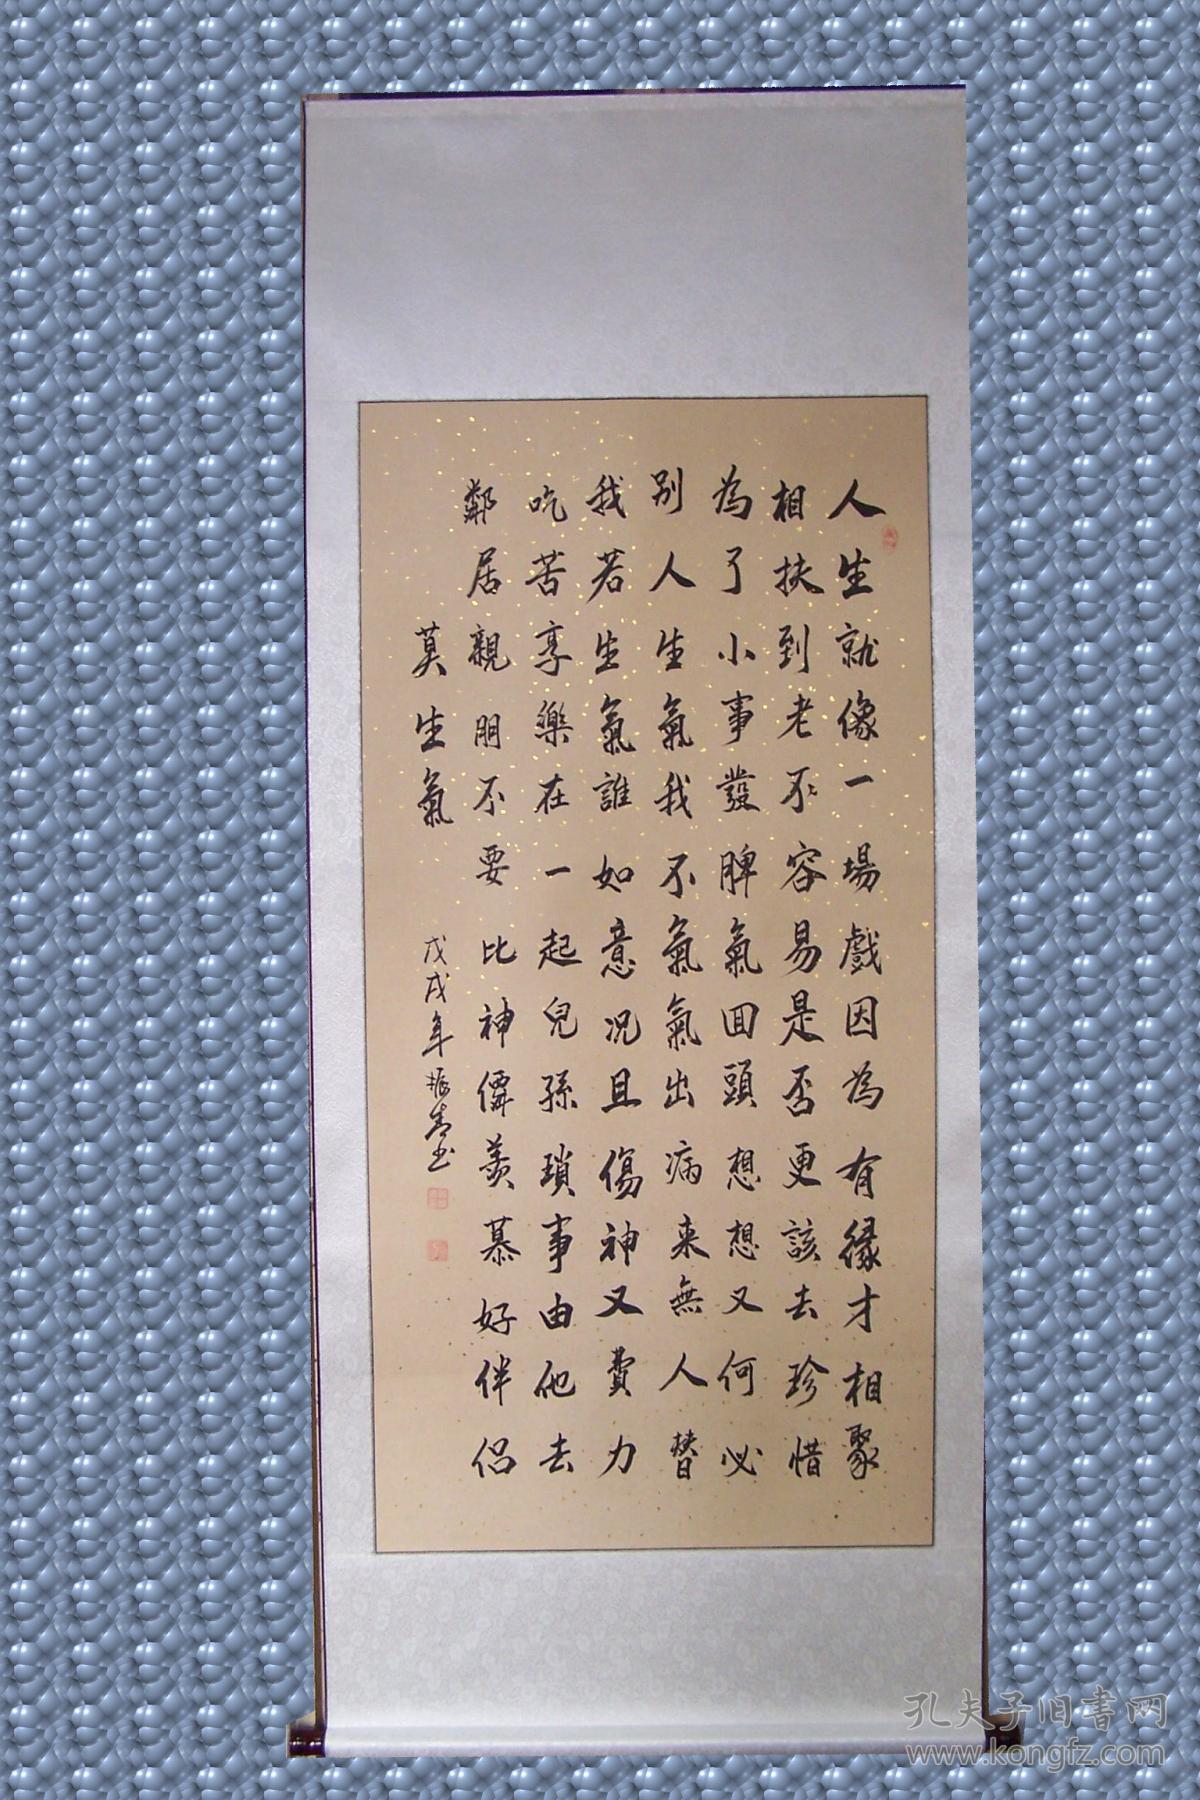 人生就像一場戲因為有緣才相聚
相扶到老不容易是否更該去珍惜
為了小事發脾氣回頭想想又何必
別人生氣我不氣氣出病来無人替
我若生氣誰如意况且傷神又費力
吃苦享樂在一起兒孫瑣事由他去
鄰居親朋不要比神僊羨慕好伴侣
莫生氣
戊戌年振青书
孔夫子旧书网
www.kongfz.com